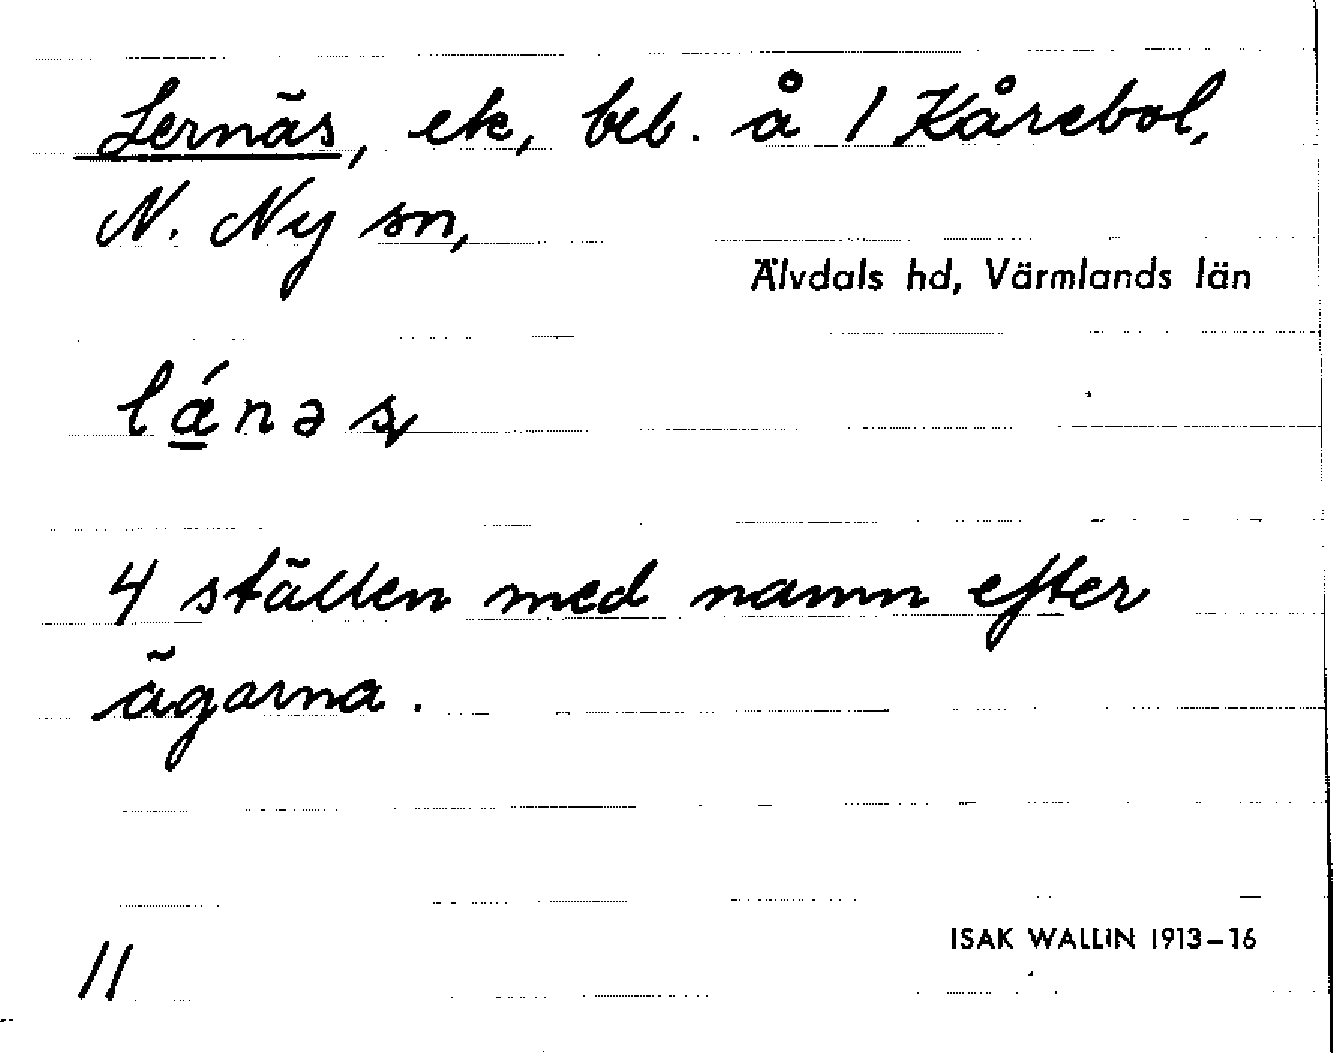 Lernäs, ek, beb. å 1 Kårebol,
N. Ny sn,
Älvdals hd, Värmlands län
lǽnəs
4 ställen med namn efter
ägarna.
ISAK WALLIN 1913–16
11